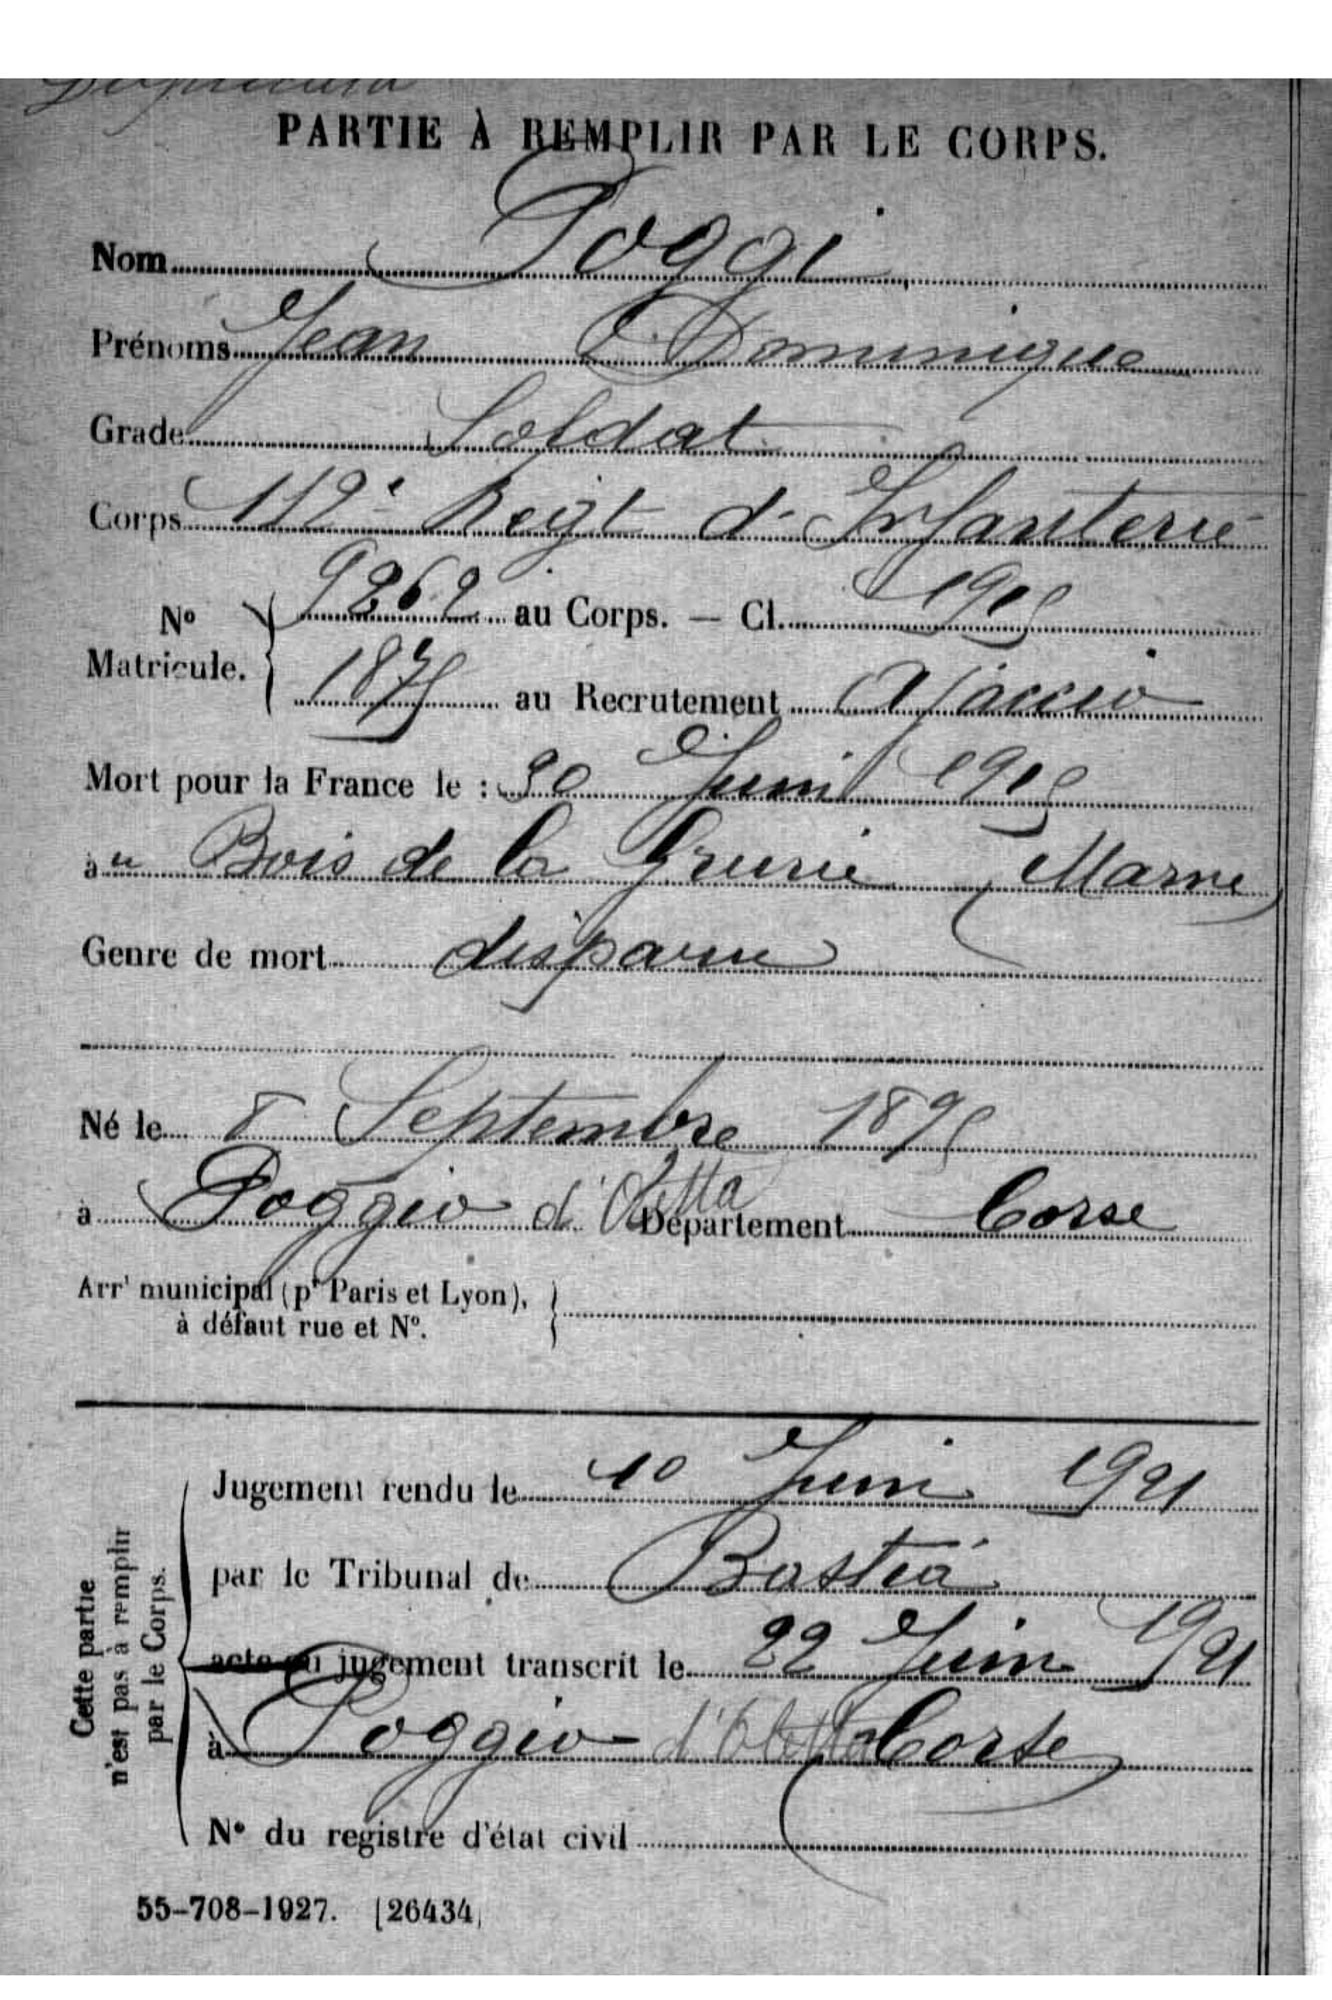 Duplicata
PARTIE À REMPLIR PAR LE CORPS.
Nom Poggi
Prénoms Jean Dominique
Grade Soldat
Corps 112e Regt d'Infanterie
No Matricule. 9262 au Corps. — Cl. 1915
1875 au Recrutement Ajaccio
Mort pour la France le : 30 Juin 1915
au Bois de la Grurie (Marne)
Genre de mort disparu
Né le 8 Septembre 1895
à Poggio d'Oletta Département Corse
Arrt municipal (pr Paris et Lyon),
à défaut rue et No.
Cette partie
n'est pas à remplir
par le Corps.
Jugement rendu le 10 Juin 1921
par le Tribunal de Bastia
acte ou jugement transcrit le 22 Juin 1921
à Poggio d'Oletta (Corse)
No du registre d'état civil
55-708-1927. [26434]